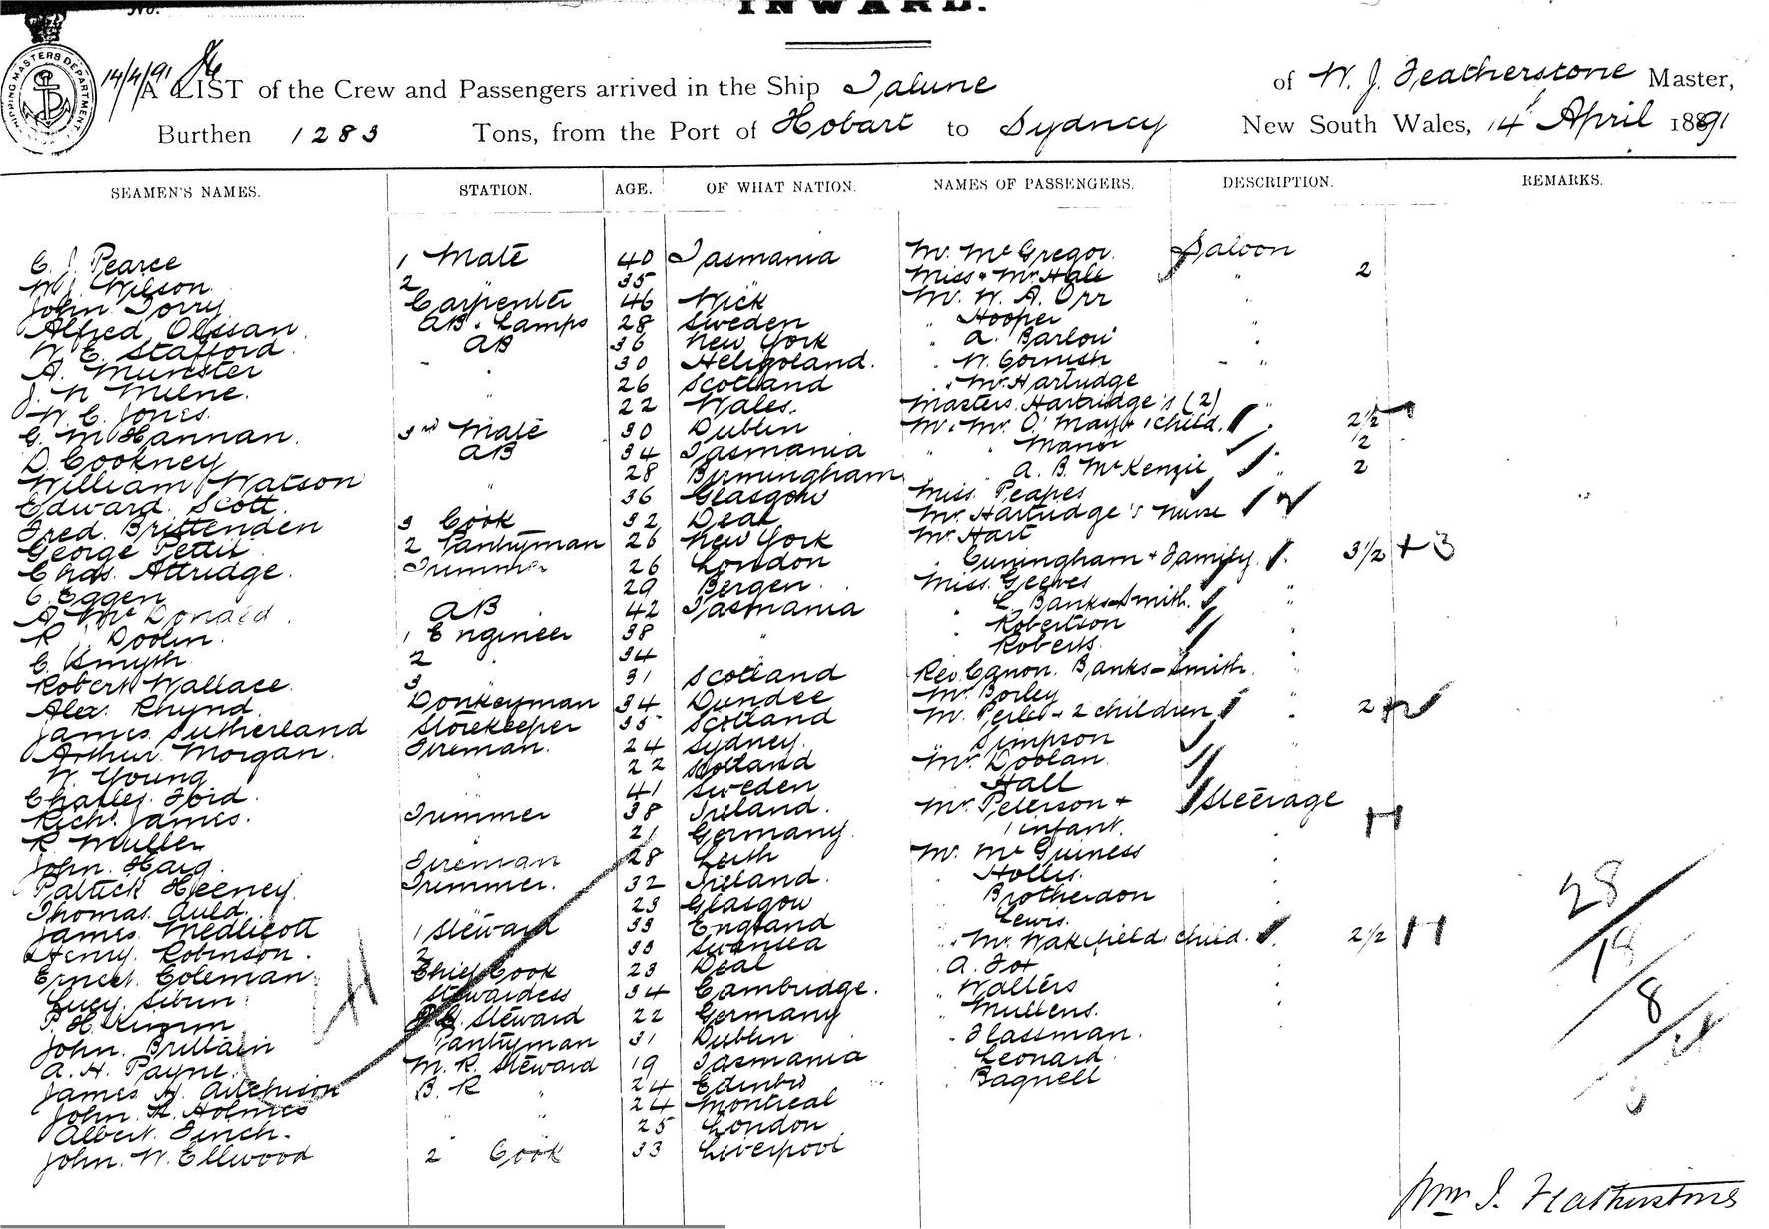 No.
INWARD.
14/4/91
A LIST of the Crew and Passengers arrived in the Ship Talune of W. J. Featherstone Master,
Burthen 1283 Tons, from the Port of Hobart to Sydney New South Wales, 14 April 1891
SEAMEN'S NAMES. STATION. AGE. OF WHAT NATION. NAMES OF PASSENGERS. DESCRIPTION. REMARKS.
C. J. Pearce 1 Mate 40 Tasmania Mr. McGregor Saloon
W. J. Wilson 2 " 35 " Miss & Mr. Hall " 2
John Torry Carpenter 46 Wick Mr. W. A. Orr "
Alfred Olssan AB. Lamps 28 Sweden " Hooper "
W. E. Stafford AB 36 New York " A. Barlow "
A. Munster " 30 Heligoland. " W. Cornish "
J. N. Milne. " 26 Scotland " Mrs Hartridge
W. C. Jones " 22 Wales. Masters Hartridge's (2) "
G. M. Hannan. 3rd Mate 30 Dublin Mr. Mrs. O. May & 1 child. " 2 1/2
D. Cookney AB 34 Tasmania " " Manor " 2
William Watson " 28 Birmingham " A. B. McKenzie " 2
Edward Scott. " 36 Glasgow Miss Peapes
Fred. Brittenden 3 Cook 32 Deal Mrs Hartridge's Nurse
George Pettit 2 Pantryman 26 New York Mr Hart
Chas. Attridge. Trimmer 26 London " Cuningham & Family. " 3 1/2 + 3
C. Eggen 29 Bergen. Miss. Geeves
A. McDonald AB 42 Tasmania " C. Banks-Smith. "
R. Doolin. 1 Engineer 38 " " Robertson
C. Smyth 2 " 34 " " Roberts
Robert Wallace 3 " 31 Scotland Rev. Canon. Banks-Smith. "
Alex. Rhynd Donkeyman 34 Dundee Mr. Borley "
James Sutherland Storekeeper 35 Scotland Mr. & 2 children " 2
Arthur Morgan. Fireman. 24 Sydney. " Simpson "
W. Young " 22 Scotland Mrs Doolan
Charles " 41 Sweden " Hall
Richd. James. Trimmer 38 Ireland. Mrs Peterson & Steerage
R. Muller " 21 Germany. 1 infant.
John. Haig. Fireman 28 Leith Mr. McGuiness "
Patrick Heeney. Trimmer. 32 Ireland. " Hollis. "
Thomas. Auld. " 23 Glasgow " Brotherdon "
James. Medlicott 1 Steward 33 England " Lewis.
Henry. Robinson. 2 " 33 Swansea " Mrs Wakefield child. " 2 1/2
Ernest Coleman Chief Cook 23 Deal " A. Fox "
Lucy. Stewardess 34 Cambridge. " Walters "
P. H. Steward 22 Germany " Mullens. "
John. Brittain Pantryman 31 Dublin " Flassman.
A. H. Payne. M. R. Steward 19 Tasmania " Leonard.
James H. Aitchison B. R " 24 Edinbro " Bagnell
John. H. Holmes " " 24 Montreal
Albert. Finch. " " 25 London
John. W. Ellwood 2 Cook 33 Liverpool
28
18
8
Wm J. Featherstone